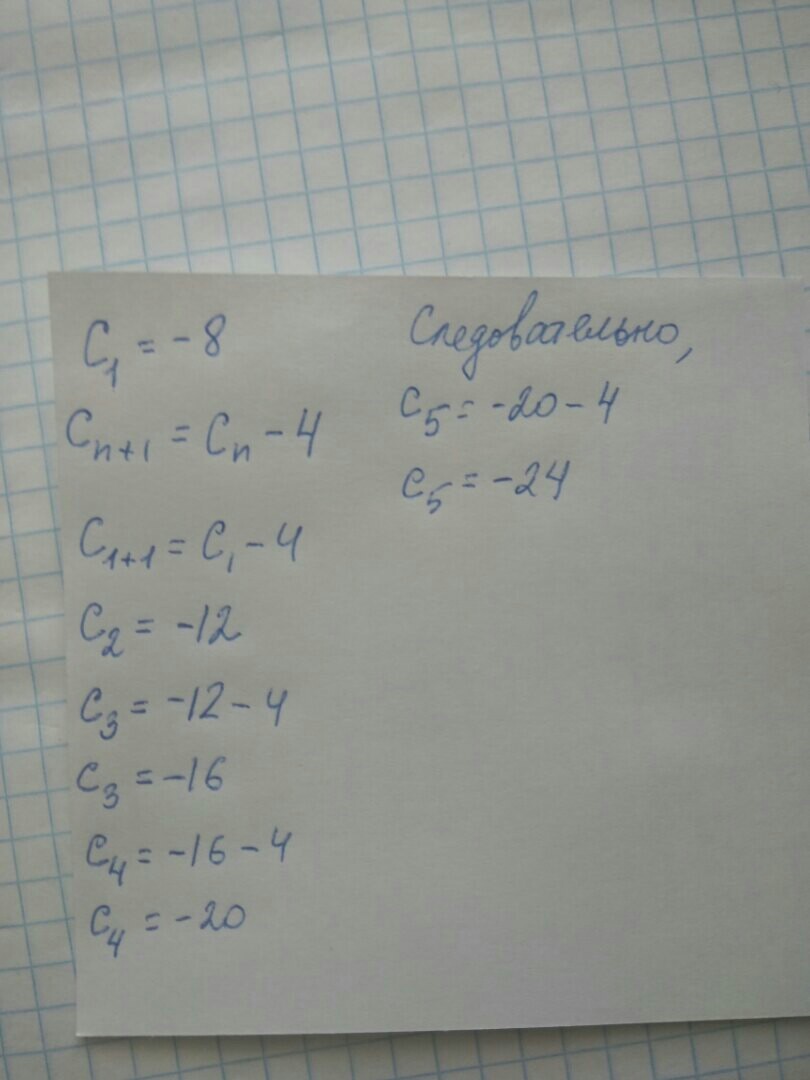 C₁ = -8
Cₙ₊₁ = Cₙ - 4
C₁₊₁ = C₁ - 4
C₂ = -12
C₃ = -12 - 4
C₃ = -16
C₄ = -16 - 4
C₄ = -20
Следовательно,
C₅ = -20 - 4
C₅ = -24